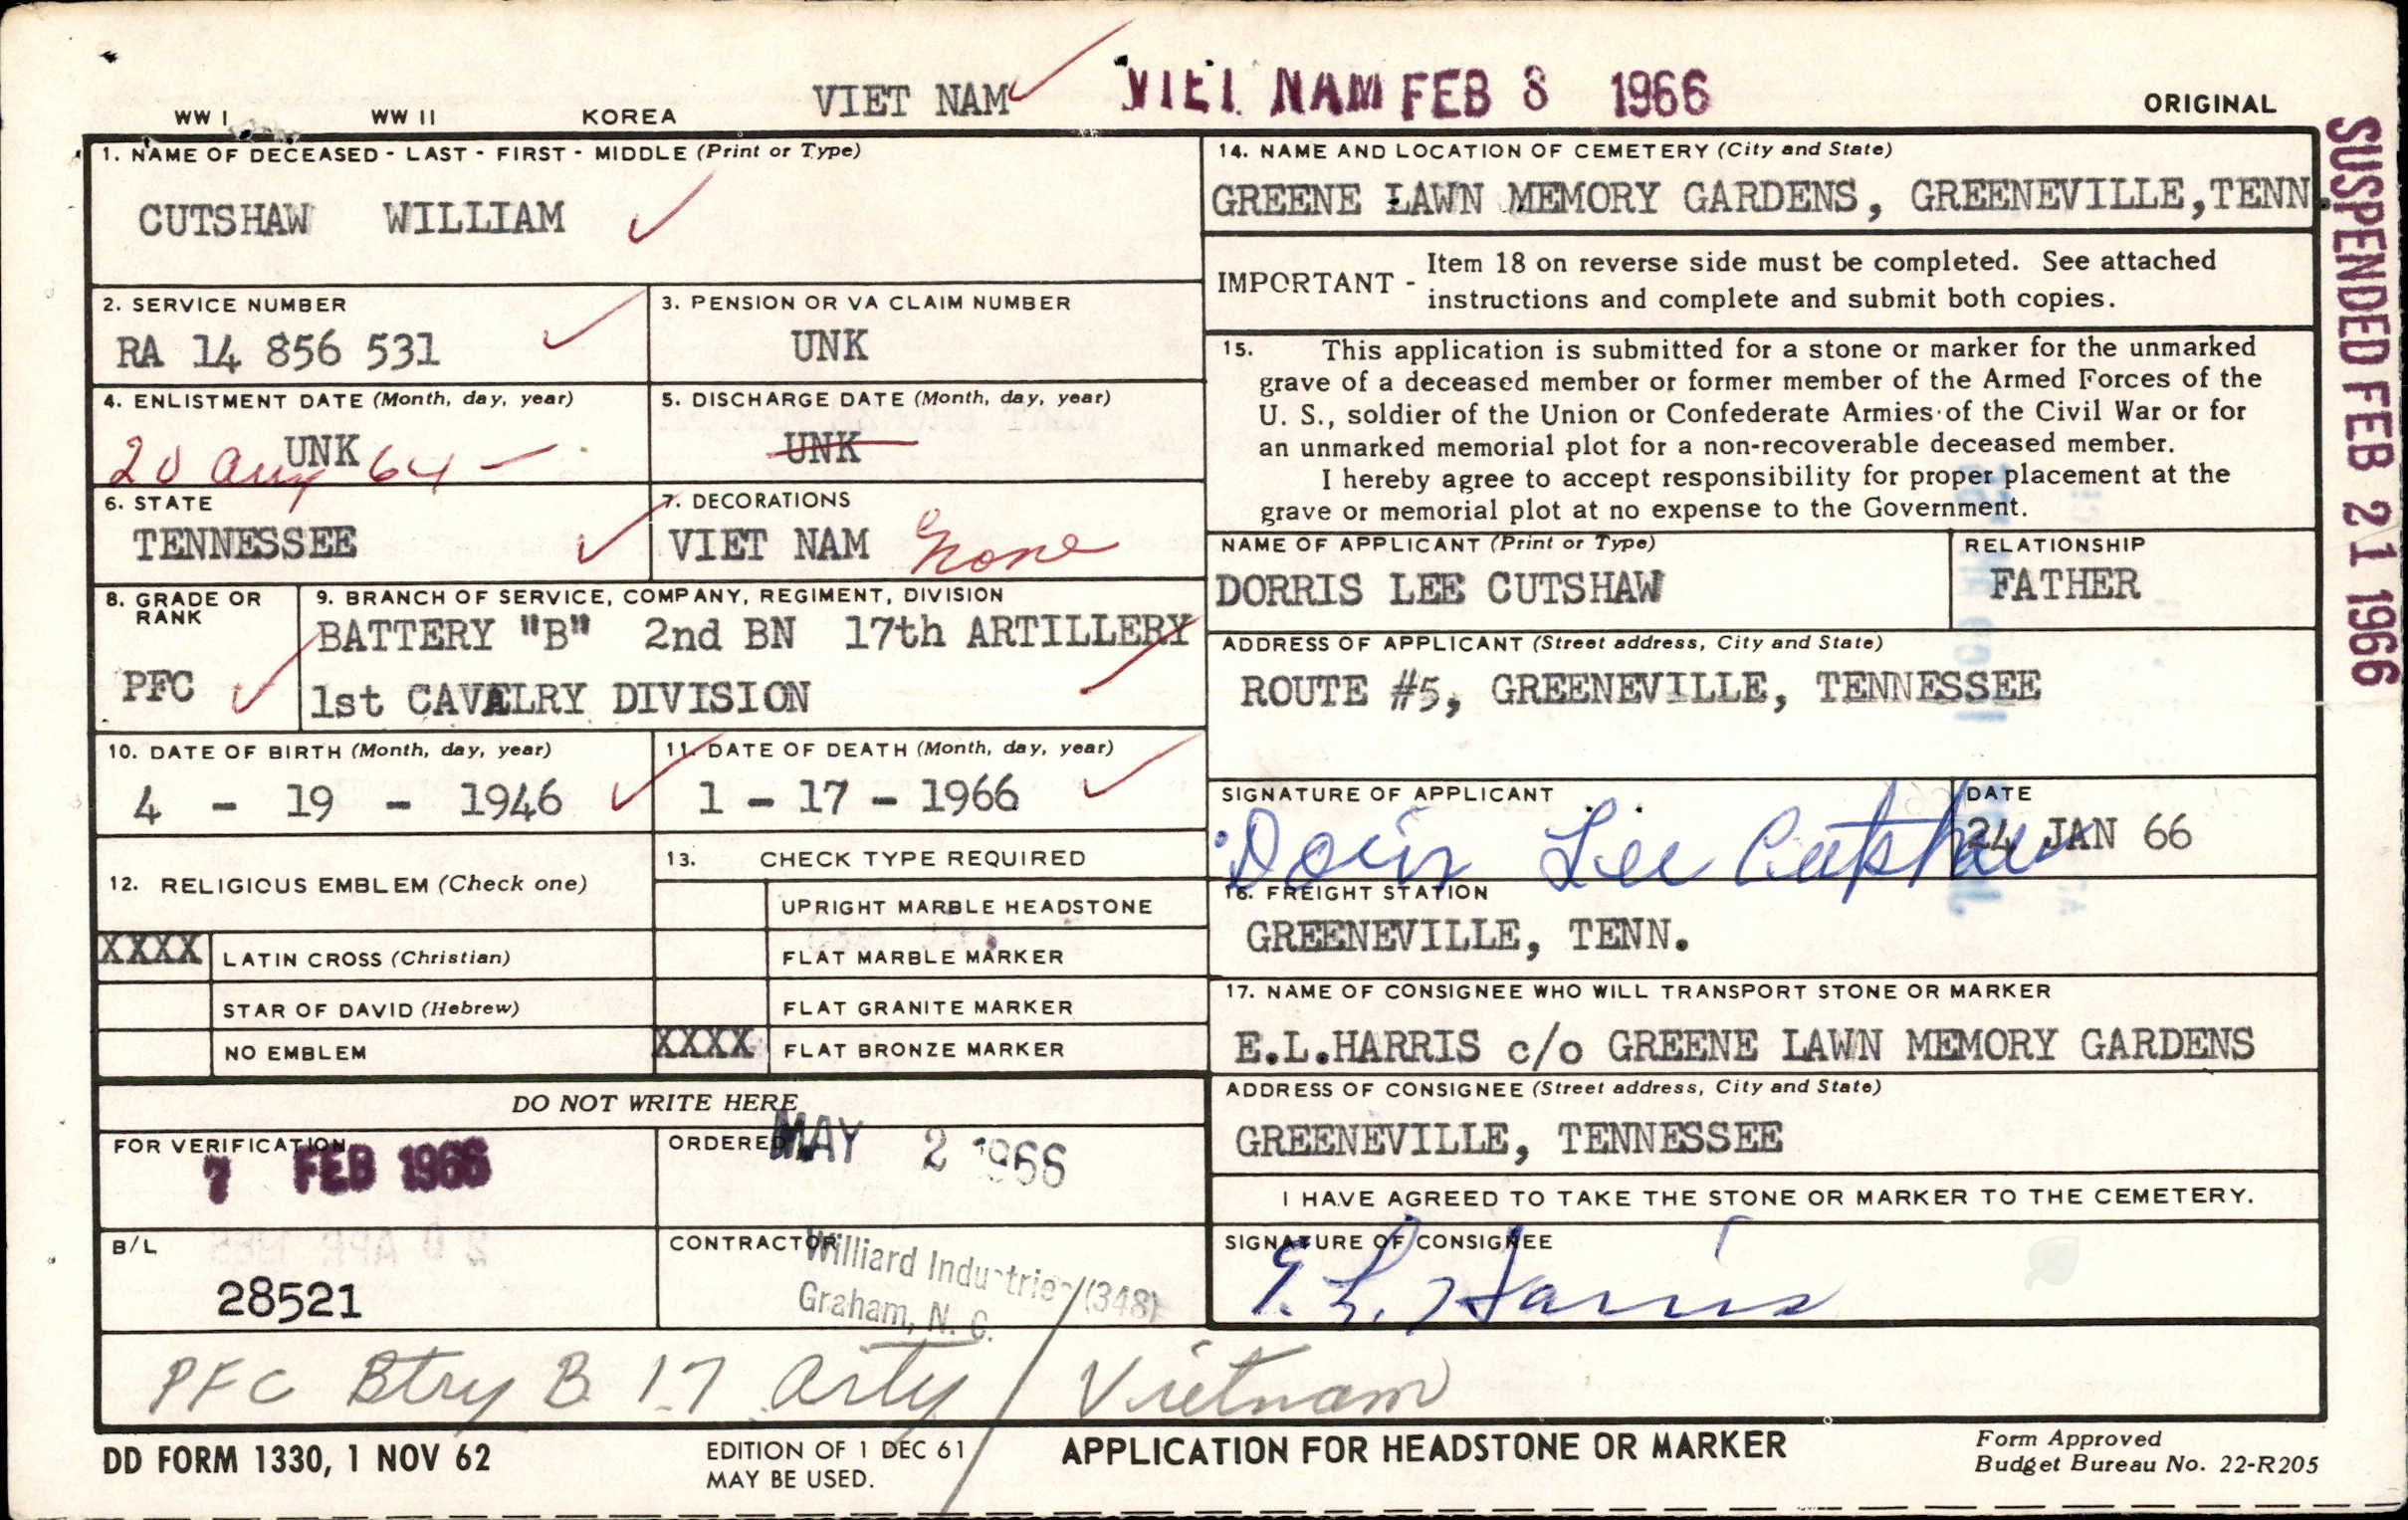 WW I WW II KOREA VIET NAM VIET NAM FEB 8 1966 ORIGINAL
SUSPENDED FEB 21 1966
1. NAME OF DECEASED - LAST - FIRST - MIDDLE (Print or Type)
CUTSHAW WILLIAM
2. SERVICE NUMBER
RA 14 856 531
3. PENSION OR VA CLAIM NUMBER
UNK
4. ENLISTMENT DATE (Month, day, year)
UNK
20 Aug 64 -
5. DISCHARGE DATE (Month, day, year)
UNK
6. STATE
TENNESSEE
7. DECORATIONS
VIET NAM None
8. GRADE OR
RANK
PFC
9. BRANCH OF SERVICE, COMPANY, REGIMENT, DIVISION
BATTERY "B" 2nd BN 17th ARTILLERY
1st CAVALRY DIVISION
10. DATE OF BIRTH (Month, day, year)
4 - 19 - 1946
11. DATE OF DEATH (Month, day, year)
1 - 17 - 1966
12. RELIGIOUS EMBLEM (Check one)
XXXX LATIN CROSS (Christian)
STAR OF DAVID (Hebrew)
NO EMBLEM
13. CHECK TYPE REQUIRED
UPRIGHT MARBLE HEADSTONE
FLAT MARBLE MARKER
FLAT GRANITE MARKER
XXXX FLAT BRONZE MARKER
DO NOT WRITE HERE
FOR VERIFICATION
7 FEB 1966
ORDERED MAY 2 1966
B/L
28521
CONTRACTOR
Williard Industries (348)
Graham, N. C.
14. NAME AND LOCATION OF CEMETERY (City and State)
GREENE LAWN MEMORY GARDENS, GREENEVILLE,TENN.
IMPORTANT - Item 18 on reverse side must be completed. See attached
instructions and complete and submit both copies.
15. This application is submitted for a stone or marker for the unmarked
grave of a deceased member or former member of the Armed Forces of the
U. S., soldier of the Union or Confederate Armies of the Civil War or for
an unmarked memorial plot for a non-recoverable deceased member.
I hereby agree to accept responsibility for proper placement at the
grave or memorial plot at no expense to the Government.
NAME OF APPLICANT (Print or Type)
DORRIS LEE CUTSHAW
RELATIONSHIP
FATHER
ADDRESS OF APPLICANT (Street address, City and State)
ROUTE #5, GREENEVILLE, TENNESSEE
SIGNATURE OF APPLICANT
Doris Lee Cutshaw
DATE
24 JAN 66
16. FREIGHT STATION
GREENEVILLE, TENN.
17. NAME OF CONSIGNEE WHO WILL TRANSPORT STONE OR MARKER
E.L.HARRIS c/o GREENE LAWN MEMORY GARDENS
ADDRESS OF CONSIGNEE (Street address, City and State)
GREENEVILLE, TENNESSEE
I HAVE AGREED TO TAKE THE STONE OR MARKER TO THE CEMETERY.
SIGNATURE OF CONSIGNEE
E. L. Harris
PFC Btry B 17 Arty / Vietnam
DD FORM 1330, 1 NOV 62
EDITION OF 1 DEC 61
MAY BE USED.
APPLICATION FOR HEADSTONE OR MARKER
Form Approved
Budget Bureau No. 22-R205